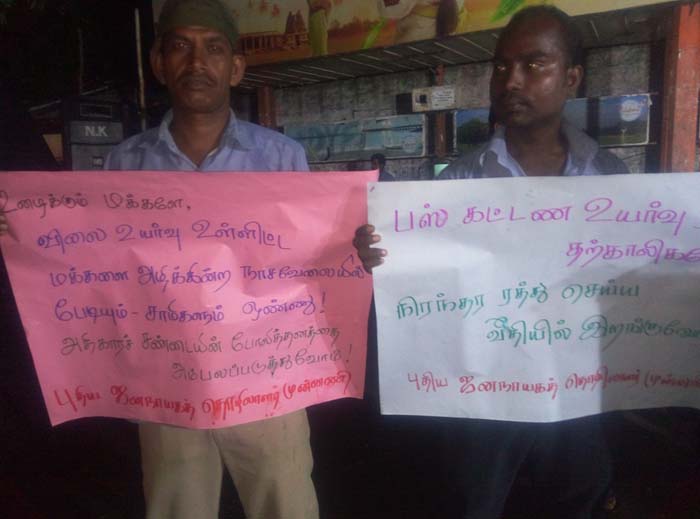 N.K
உழைக்கும் மக்களே,
விலை உயர்வு உள்ளிட்ட
மக்களை அழிக்கின்ற நாசவேலையில்
பேடியும் - சாமிகளும் ஒண்ணு!
அதிகாரச் சண்டையின் போலித்தனத்தை
அம்பலப்படுத்துவோம்!
புதிய ஜனநாயகத் தொழிலாளர் முன்னணி
பஸ் கட்டண உயர்வு
தற்காலிக
நிரந்தர ரத்து செய்ய
வீதியில் இறங்குவோ
புதிய ஜனநாயகத் தொழிலாளர் முன்ன